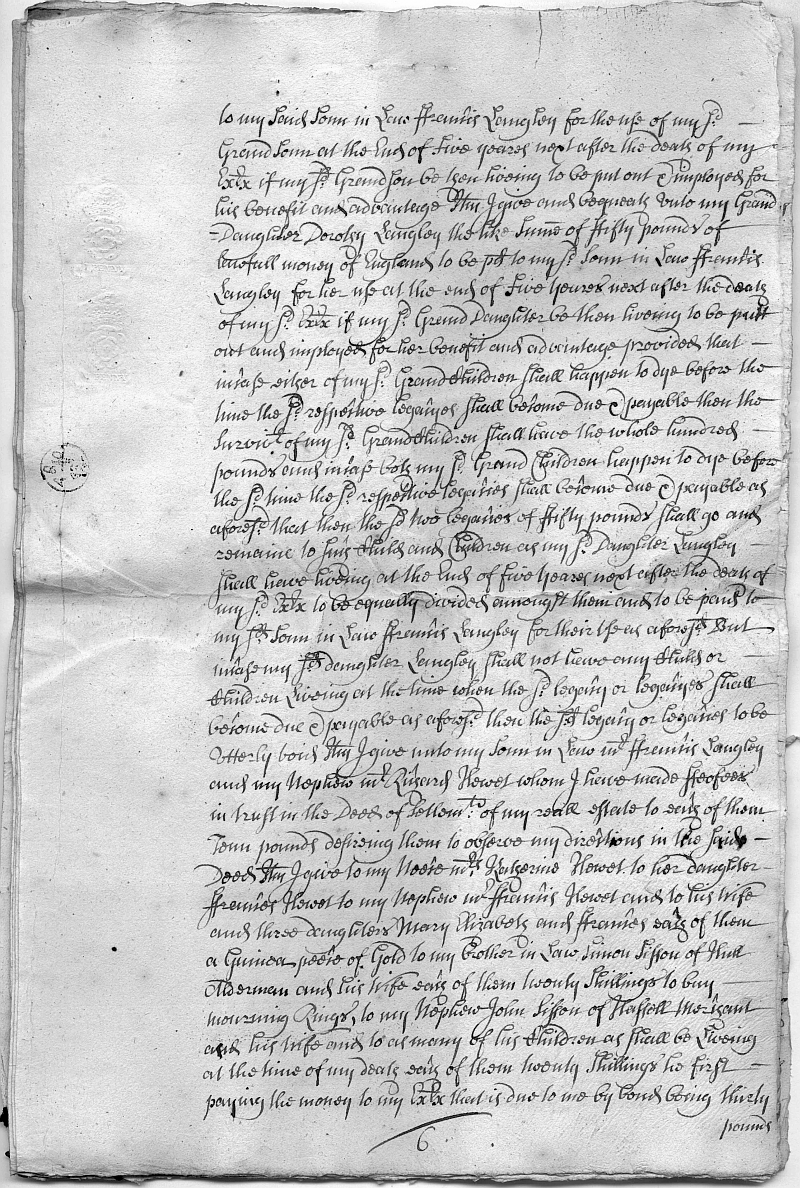 to my said Sonn in Law Ffrancis Langley for the use of my sd
Grand Sonn at the End of Five yeares next after the death of my
Extx if my sd Grandson be then liveing to be put out & imployed for
his benefit and advantage Itm I give and bequeath unto my Grand
-Daughter Dorothy Langley the like Summe of Fifty pounds of
lawfull money of England to be pd to my sd Sonn in Law Ffrancis
Langley for her use at the end of Five yeares next after the death
of my sd Extx if my sd Grand Daughter be then liveing to be putt
out and imployed for her benefit and advantage provided that
incase either of my sd Grandchildren shall happen to dye before the
time the sd respective legacyes shall become due & payable then the
Survivr of my sd Grandchildren shall have the whole hundred
pounds and incase both my sd Grand Children happen to dye before
the sd time the sd respective legacies shall become due & payable as
aforesd that then the sd two legacies of Fifty pounds shall go and
remaine to such Child and Children as my sd Daughter Langley
shall have liveing at the End of five yeares next after the death of
my sd Extx to be equally divided amongst them and to be paid to
my sd Sonn in Law Ffrancis Langley for their use as aforesd But
incase my sd daughter Langley shall not have any Child or
Children Liveing at the time when the sd legacy or legacyes shall
become due & payable as aforesd then the sd legacy or legacies to be
Utterly void Itm I give unto my Sonn in Law mr Ffrancis Langley
and my Nephew mr Richard Hewet whom I have made Ffeofees
in trust in the Deed of Settlemt of my reall estate to each of them
Tenn pounds desireing them to observe my directions in the said
Deed Itm I give to my Neece mrs Katherine Hewet to her daughter
Ffrances Hewet to my Nephew mr Ffrancis Hewet and to his wife
and three daughters Mary Elizabeth and Ffrances each of them
a Guinea peece of Gold to my Brother in Law Simon Sisson of Hull
Alderman and his wife each of them twenty Shillings to buy
mourning Rings, to my Nephew John Sisson of Hassell Merchant
and his wife and to as many of his Children as shall be Liveing
at the time of my death each of them twenty Shillings he first
paying the money to my Extx that is due to me by bond being thirty
pounds
6